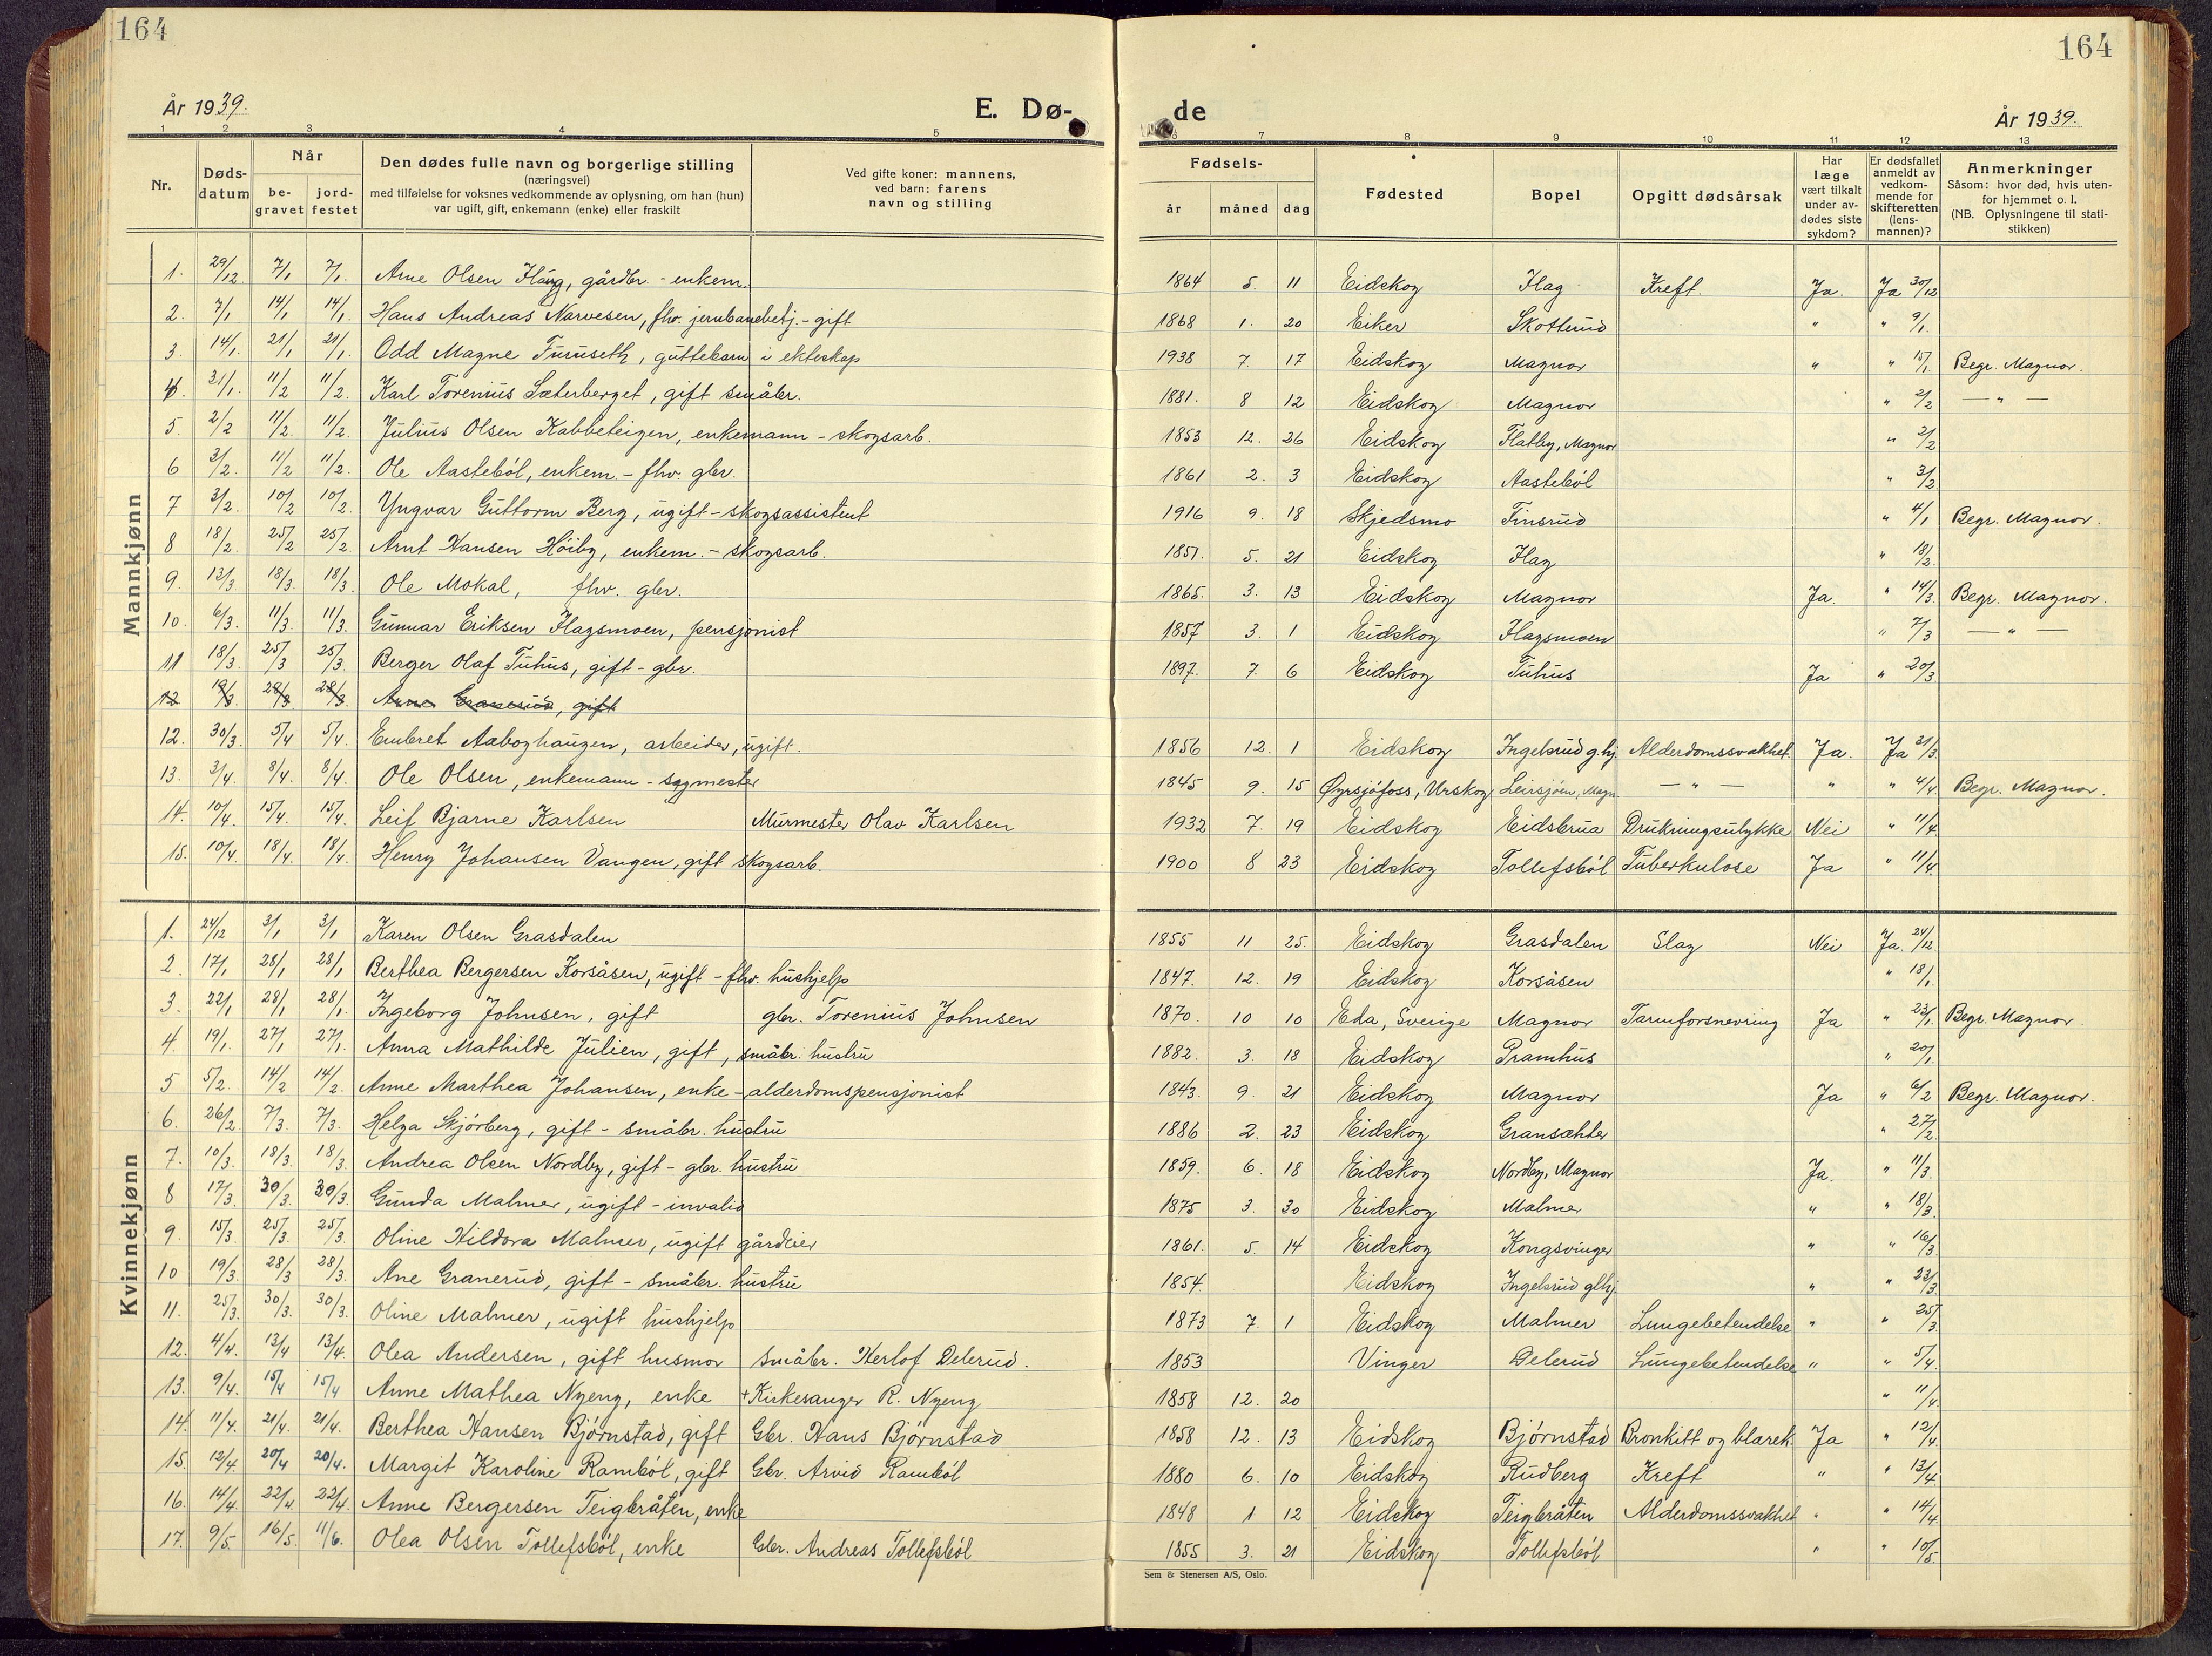 164
164
År 1939.
E. Dø-
de
År 1939.
1 2 3 4 5 6 7 8 9 10 11 12 13
Nr.
Døds-
datum
Når
be-
gravet
jord-
festet
Den dødes fulle navn og borgerlige stilling
(næringsvei)
med tilføielse for voksnes vedkommende av oplysning, om han (hun)
var ugift, gift, enkemann (enke) eller fraskilt
Ved gifte koner: mannens,
ved barn: farens
navn og stilling
Fødsels-
år måned dag
Fødested
Bopel
Opgitt dødsårsak
Har
læge
vært tilkalt
under av-
dødes siste
sykdom?
Er dødsfallet
anmeldt av
vedkom-
mende for
skifteretten
(lens-
mannen)?
Anmerkninger
Såsom: hvor død, hvis uten-
for hjemmet o. l.
(NB. Oplysningene til stati-
stikken)
Mannkjønn
1. 29/12 7/1 7/1. Arne Olsen Flag, gårdbr. - enkem. 1864 5. 11 Eidskog Flag Kreft. Ja. Ja 30/12
2. 7/1 14/1 14/1. Hans Andreas Narvesen, fhv. jernbanebetj. - gift 1868 1. 20 Eiker Skotterud " " 9/1.
3. 14/1. 21/1 21/1. Odd Magne Furuseth, guttebarn i ekteskap 1938 7. 17 Eidskog Magnor " " 15/1. Begr. Magnor.
4. 31/1. 11/2 11/2. Karl Torenius Sæterberget, gift småbr. 1881. 8 12 Eidskog Magnor " 2/2 — " —
5. 2/2 11/2. 11/2. Julius Olsen Kabbeteigen, enkemann - skogsarb. 1853 12. 26 Eidskog Flatby, Magnor " 2/2
6 3/2. 11/2 11/2. Ole Aastebøl, enkem. - fhv. gbr. 1861 2. 3 Eidskog Aastebøl " 3/2
7 3/2. 10/2 10/2. Yngvar Guttorm Berg, ugift - skogsassistent 1916 9. 18 Skjedsmo Finsrud " 4/1 Begr. Magnor.
8 18/2. 25/2 25/2. Arnt Hansen Høiby, enkem. - skogsarb. 1851. 5. 21 Eidskog Flag " 18/2.
9. 13/3 18/3. 18/3. Ole Mokal, fhv. gbr. 1865. 3. 13 Eidskog Magnor Ja. " 14/3. Begr. Magnor.
10. 6/3. 11/3. 11/3. Gunnar Eriksen Flagsmoen, pensjonist 1857 3. 1 Eidskog Flagsmoen " 7/3 — " —
11 18/3. 25/3 25/3. Berger Olaf Tuhus, gift - gbr. 1897. 7. 6 Eidskog Tuhus Ja " 20/3.
12 19/3. 28/3 28/3. gift
12. 30/3. 5/4 5/4. Embret Aaboghaugen, arbeider, ugift. 1856 12. 1 Eidskog Ingelsrud g.hj. Alderdomssvakhet Ja. Ja 31/3.
13. 3/4. 8/4. 8/4. Ole Olsen, enkemann - sagmester 1845 9. 15 Øyrsjøfoss, Urskog Leirsjøen, Magn. — " — " " 4/4. Begr. Magnor.
14. 10/4. 15/4. 15/4. Leif Bjarne Karlsen Murmester Olav Karlsen 1932 7. 19 Eidskog Eidsbrua Drukningsulykke Nei " 11/4.
15. 10/4. 18/4. 18/4. Henry Johansen Vangen, gift skogsarb. 1900 8 23 Eidskog Tollefsbøl Tuberkulose Ja " 11/4.
Kvinnekjønn
1. 24/12 3/1 3/1 Karen Olsen Grasdalen 1855 11 25. Eidskog Grasdalen Slag Nei Ja. 24/12.
2. 17/1. 28/1 28/1 Berthea Bergersen Korsåsen, ugift - fhv. hushjelp 1847. 12. 19 Eidskog Korsåsen " 18/1.
3. 22/1 28/1 28/1. Ingeborg Johnsen, gift gbr. Torenius Johnsen 1870. 10 10 Eda, Sverige Magnor Tarmforsnevring Ja " 23/1. Begr. Magnor.
4. 19/1. 27/1 27/1. Anna Mathilde Julien, gift, småbr. hustru 1882. 3. 18 Eidskog Pramhus " 20/1.
5 5/2. 14/2 14/2. Anne Marthea Johansen, enke - alderdomspensjonist 1843. 9. 21 Eidskog Magnor Ja " 6/2 Begr. Magnor.
6. 26/2 7/3 7/3. Helga Skjørberg, gift - småbr. hustru 1886 2. 23 Eidskog Gransæhter " 27/2.
7. 10/3. 18/3. 18/3. Andrea Olsen Nordby, gift - gbr. hustru 1859. 6. 18 Eidskog Nordby, Magnor Ja. " 11/3.
8 17/3. 30/3. 30/3. Gunda Malmer, ugift - invalid 1875 3. 30 Eidskog Malmer " " 18/3.
9. 15/3 25/3. 25/3. Oline Hildora Malmer, ugift gårdeier 1861. 5. 14 Eidskog Kongsvinger " " 16/3.
10 19/3. 28/3 28/3. Ane Granerud, gift - småbr. hustru 1854. Eidskog Ingelsrud glhj. " " 22/3
11. 25/3. 30/3. 30/3. Oline Malmer, ugift hushjelp 1873 7. 1 Eidskog Malmer Lungebetendelse " " 25/3
12. 4/4. 13/4 13/4. Olea Andersen, gift husmor småbr. Herlof Delerud. 1853 Vinger Delerud Lungebetendelse " " 5/4.
13. 9/4. 15/4 15/4 Anne Mathea Nyeng, enke + Kirkesanger R. Nyeng 1858 12. 20 " 11/4.
14. 11/4. 21/4. 21/4. Berthea Hansen Bjørnstad, gift Gbr. Hans Bjørnstad 1858 12. 13 Eidskog Bjørnstad Bronkitt og blærek. Ja " 12/4.
15. 12/4. 20/4 20/4. Margit Karoline Rambøl, gift Gbr. Arvid Rambøl 1880 6. 10 Eidskog Rudberg Kreft " " 13/4.
16. 14/4. 22/4. 22/4. Anne Bergersen Teigbråten, enke 1848 1 12 Eidskog Teigbråten Alderdomssvakhet " " 14/4.
17. 9/5. 16/5. 11/6. Olea Olsen Tollefsbøl, enke Gbr. Andreas Tollefsbøl 1855 3. 21 Eidskog Tollefsbøl " " 10/5.
Sem & Stenersen A/S, Oslo.